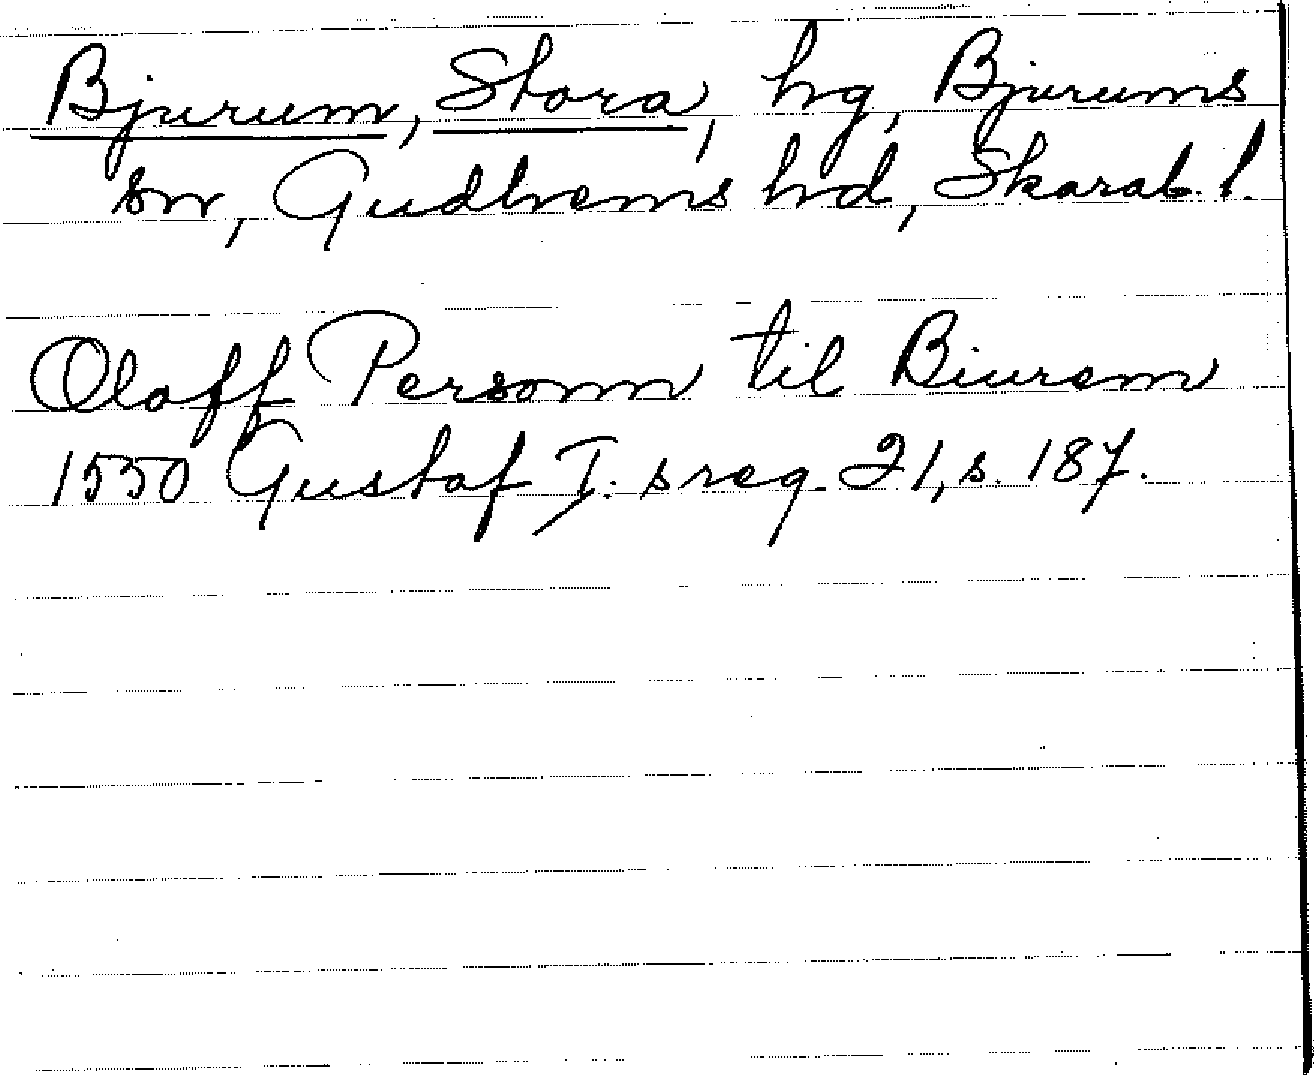 Bjurum, Stora, hg, Bjurums
sn, Gudhems hd, Skarab. l.
Oloff Personn til Biurem
1550 Gustaf I:s reg. 21, s. 187.